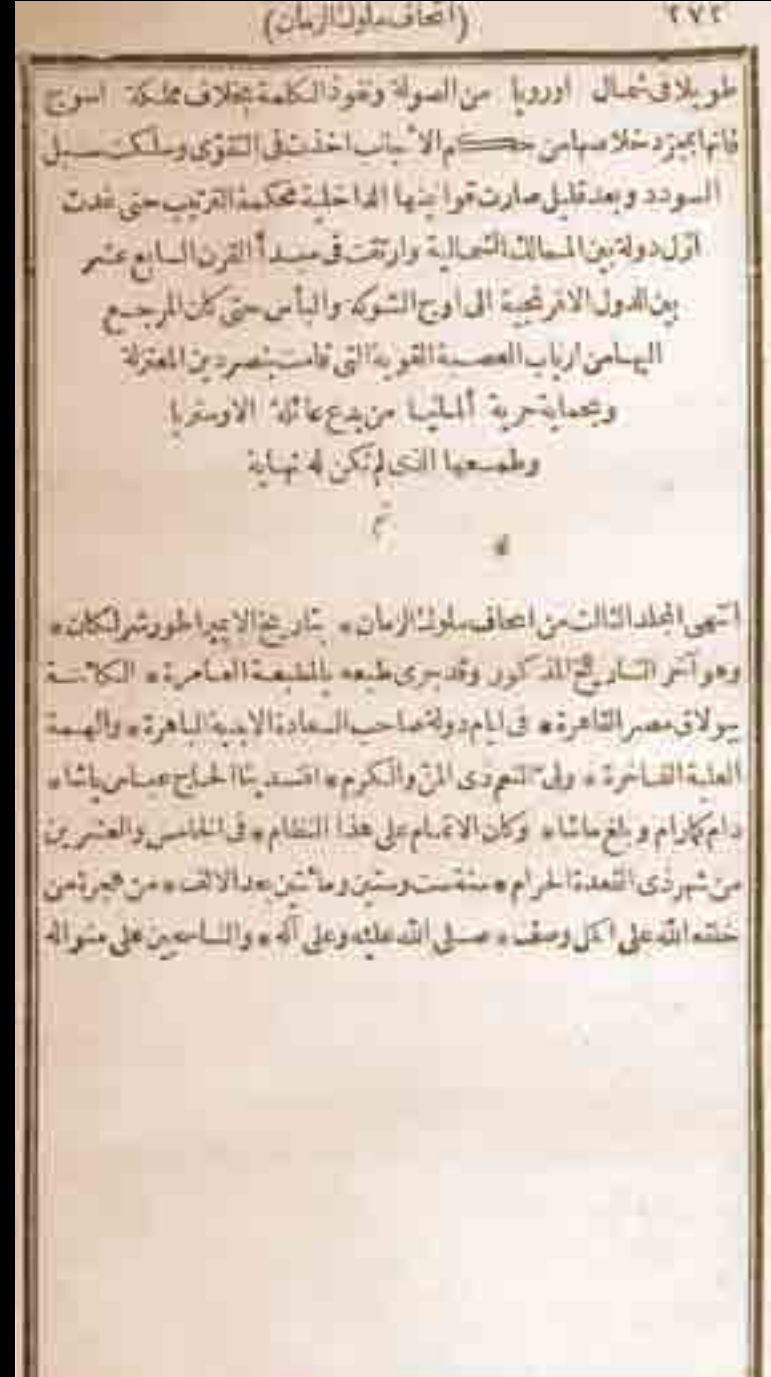 ٢٧٢
(اتحاف ملوك الزمان)
طويلا فى شمال اوروبا من الصولة ونفوذ الكلمة بخلاف مملكة اسوج
فانها بمجرد خلاصها من حكام الاجانب اخذت فى التقوى وسلكت سبيل
السودد وبعد قليل صارت قوانينها الداخلية محكمة الترتيب حتى غدت
اول دولة بين الممالك الشمالية وارتقت فى مبدأ القرن السابع عشر
بين الدول الافرنجية الى اوج الشوكة والبأس حتى كان المرجع
اليها من ارباب العصبة القوية التى قامت بنصر دين المعتزلة
وبحماية حرية ألمانيا من بدع عائلة الاوستريا
وطمعها الذى لم تكن له نهاية
تم
انتهى المجلد الثالث من اتحاف ملوك الزمان * بتاريخ الايمبراطور شرلكان *
وهو آخر التاريخ المذكور وقد جرى طبعه بالمطبعة العامرة * الكائنة
ببولاق مصر القاهرة * فى ايام دولة صاحب السعادة الابدية الباهرة * والهمة
العلية الفاخرة * ولى النعم ذى المن والكرم * افندينا الحاج عباس باشا *
دام كما رام وبلغ ما شاء * وكان الاتمام على هذا النظام * فى الخامس والعشرين
من شهر ذى القعدة الحرام * سنة ست وستين ومائتين بعد الالف * من هجرة من
خلقه الله على اكمل وصف * صلى الله عليه وعلى آله * والناسجين على منواله